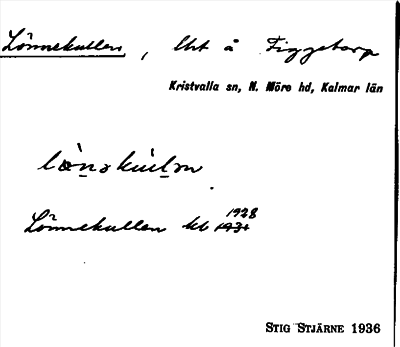 Lönnekullen, lht å Figgetorp
Kristvalla sn, N. Möre hd, Kalmar län
lœ̀nəkúlən
Lönnekullen kb 1928
STIG STJÄRNE 1936